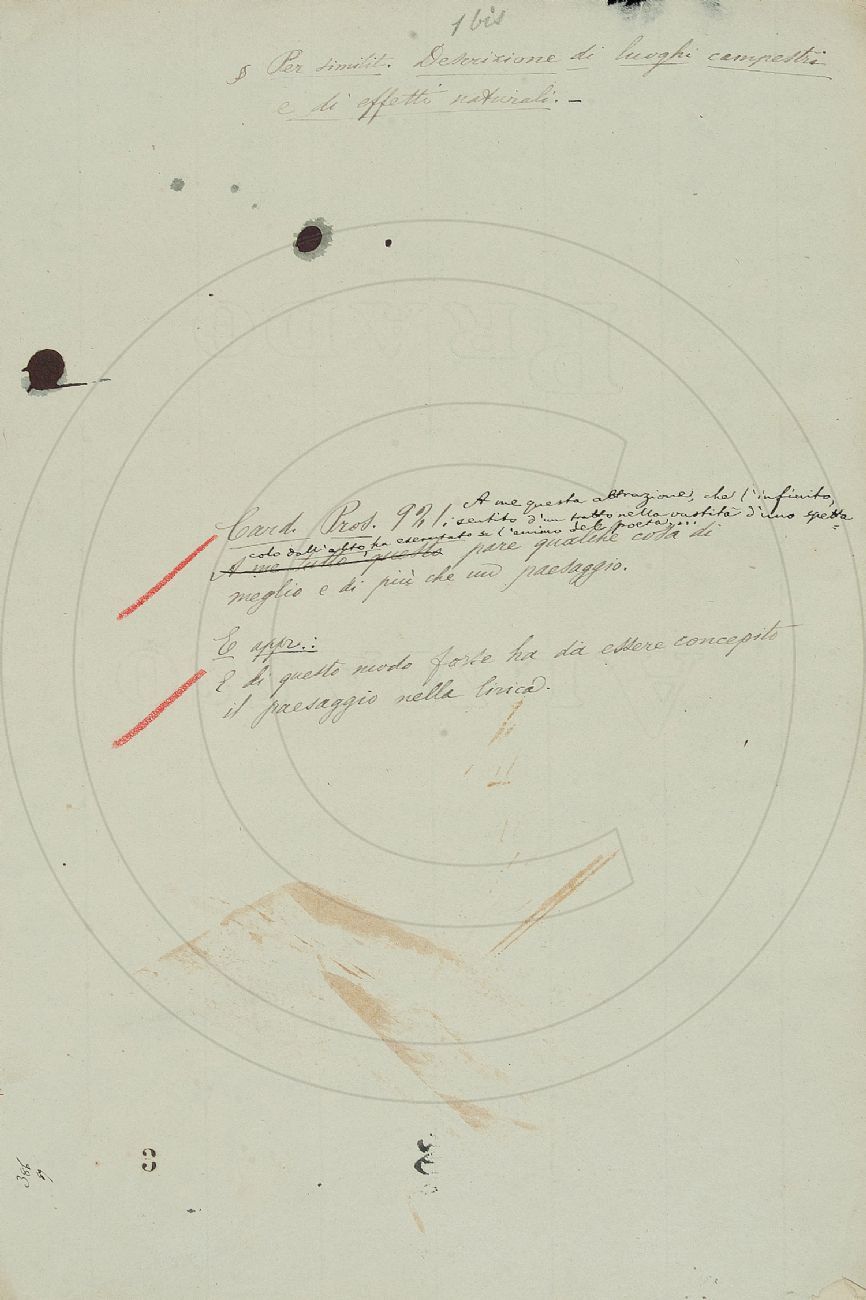 1 bis
§ Per similit. Descrizione di luoghi campestri
e di effetti naturali. –
Card. Pros. 921: A me questa attrazione, che l'infinito,
sentito d'un tratto nella vastità d'uno spetta=
colo dall'alto, ha esercitato su l'animo del poeta, ...
A me tutto questo pare qualche cosa di
meglio e di più che un paesaggio.
E appr.:
E di questo modo forse ha da essere concepito
il paesaggio nella lirica.
386
8